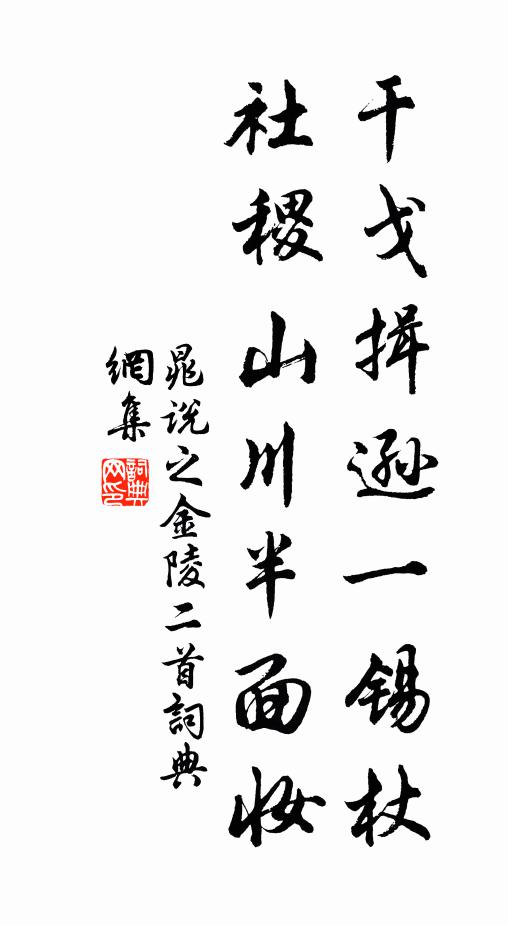 干戈揖遜一锡杖
社稷山川半面妆
晁说之金陵二首詞典
網集
詞典
网印